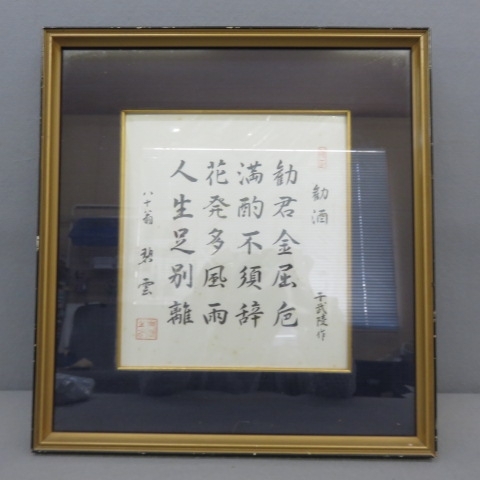 勧酒
于武陵作
勧君金屈卮
満酌不須辞
花発多風雨
人生足別離
八十八翁 碧雲